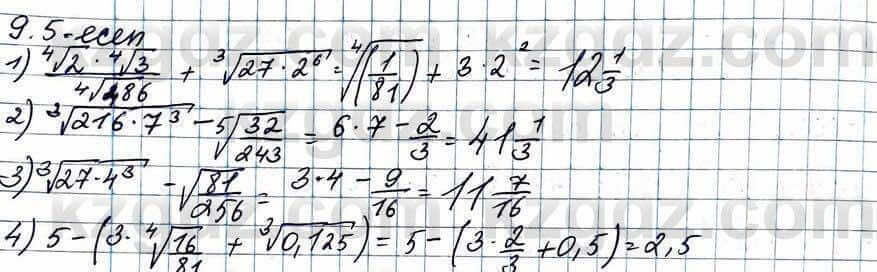 9.5-есеп
1) \frac{\sqrt[4]{2} \cdot \sqrt[4]{3}}{\sqrt[4]{486}} + \sqrt[3]{27 \cdot 2^6} = \sqrt[4]{\left(\frac{1}{81}\right)} + 3 \cdot 2^2 = 12\frac{1}{3}
2) \sqrt[3]{216 \cdot 7^3} - \sqrt[5]{\frac{32}{243}} = 6 \cdot 7 - \frac{2}{3} = 41\frac{1}{3}
3) \sqrt[3]{27 \cdot 4^3} - \sqrt{\frac{81}{256}} = 3 \cdot 4 - \frac{9}{16} = 11\frac{7}{16}
4) 5 - (3 \cdot \sqrt[4]{\frac{16}{81}} + \sqrt[3]{0,125}) = 5 - (3 \cdot \frac{2}{3} + 0,5) = 2,5